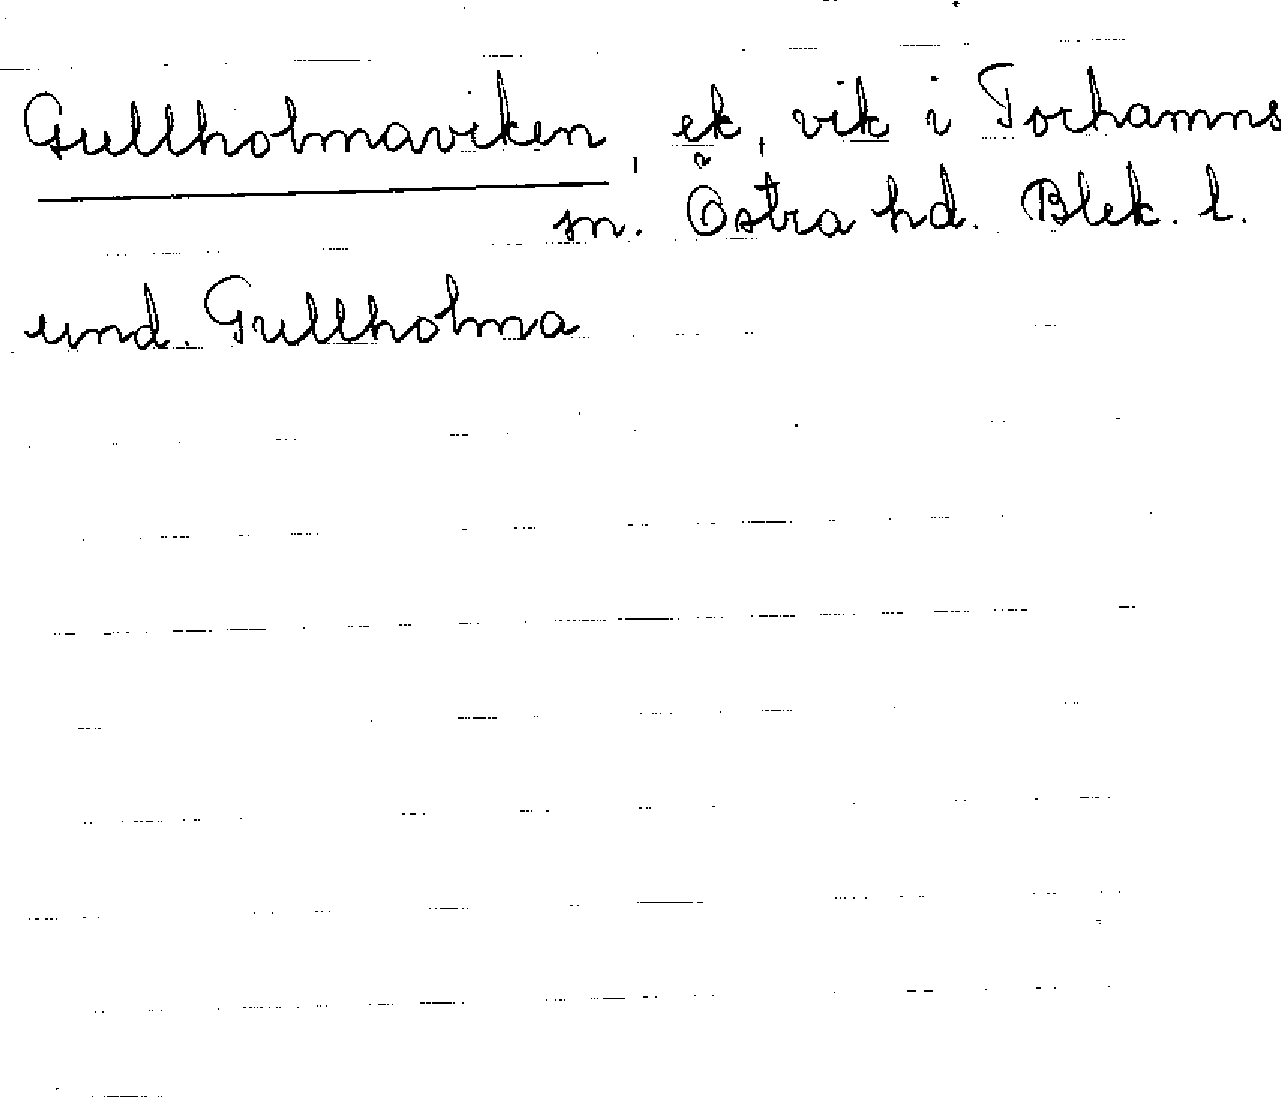 Gullholmaviken, ek, vik i Torhamns
sn. Östra hd. Blek. l.
und. Gullholma